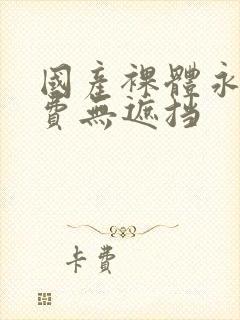 國產裸體永
費無遮挡
卡費